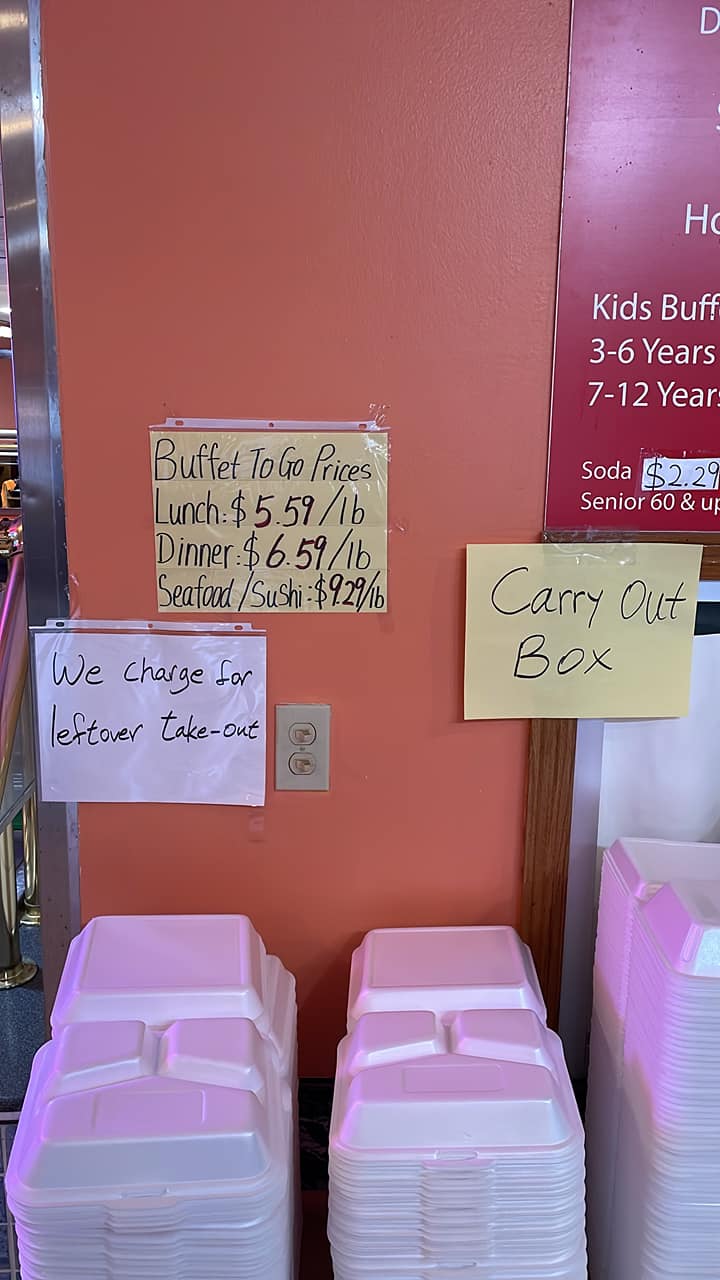 Buffet To Go Prices
Lunch: $5.59/lb
Dinner: $6.59/lb
Seafood/Sushi: $9.29/lb
We charge for
leftover take-out
Carry Out
Box
Kids
3-6 Years
7-12
Soda $2.29
Senior 60 &